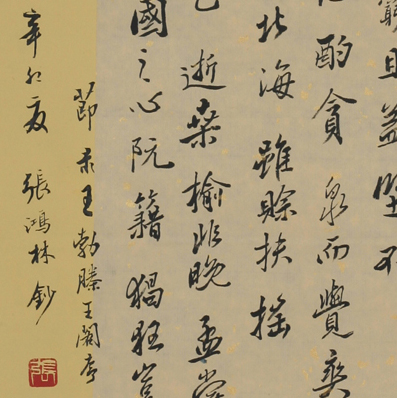 窮且益堅不
酌貪泉而覺爽
北海雖賒扶搖
逝桑榆非晚孟嘗
國之心阮籍猖狂豈
節录王勃滕王閣序
辛卯夏 張鴻林鈔
張